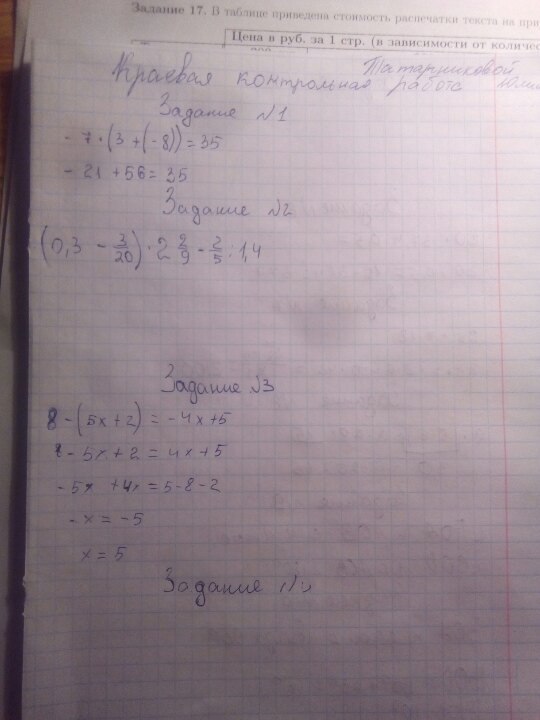 Задание 17. В таблице приведена стоимость распечатки текста на при
Цена в руб. за 1 стр. (в зависимости от количес
Краевая контрольная работа Татарниковой
Задание №1
- 7 · (3 + (- 8)) = 35
- 21 + 56 = 35
Задание №2
(0,3 - 3/20) · 2 2/9 - 2/5 : 1,4
Задание №3
8 - (5x + 2) = - 4x + 5
8 - 5x + 2 = 4x + 5
- 5x + 4x = 5 - 8 - 2
- x = - 5
x = 5
Задание №4